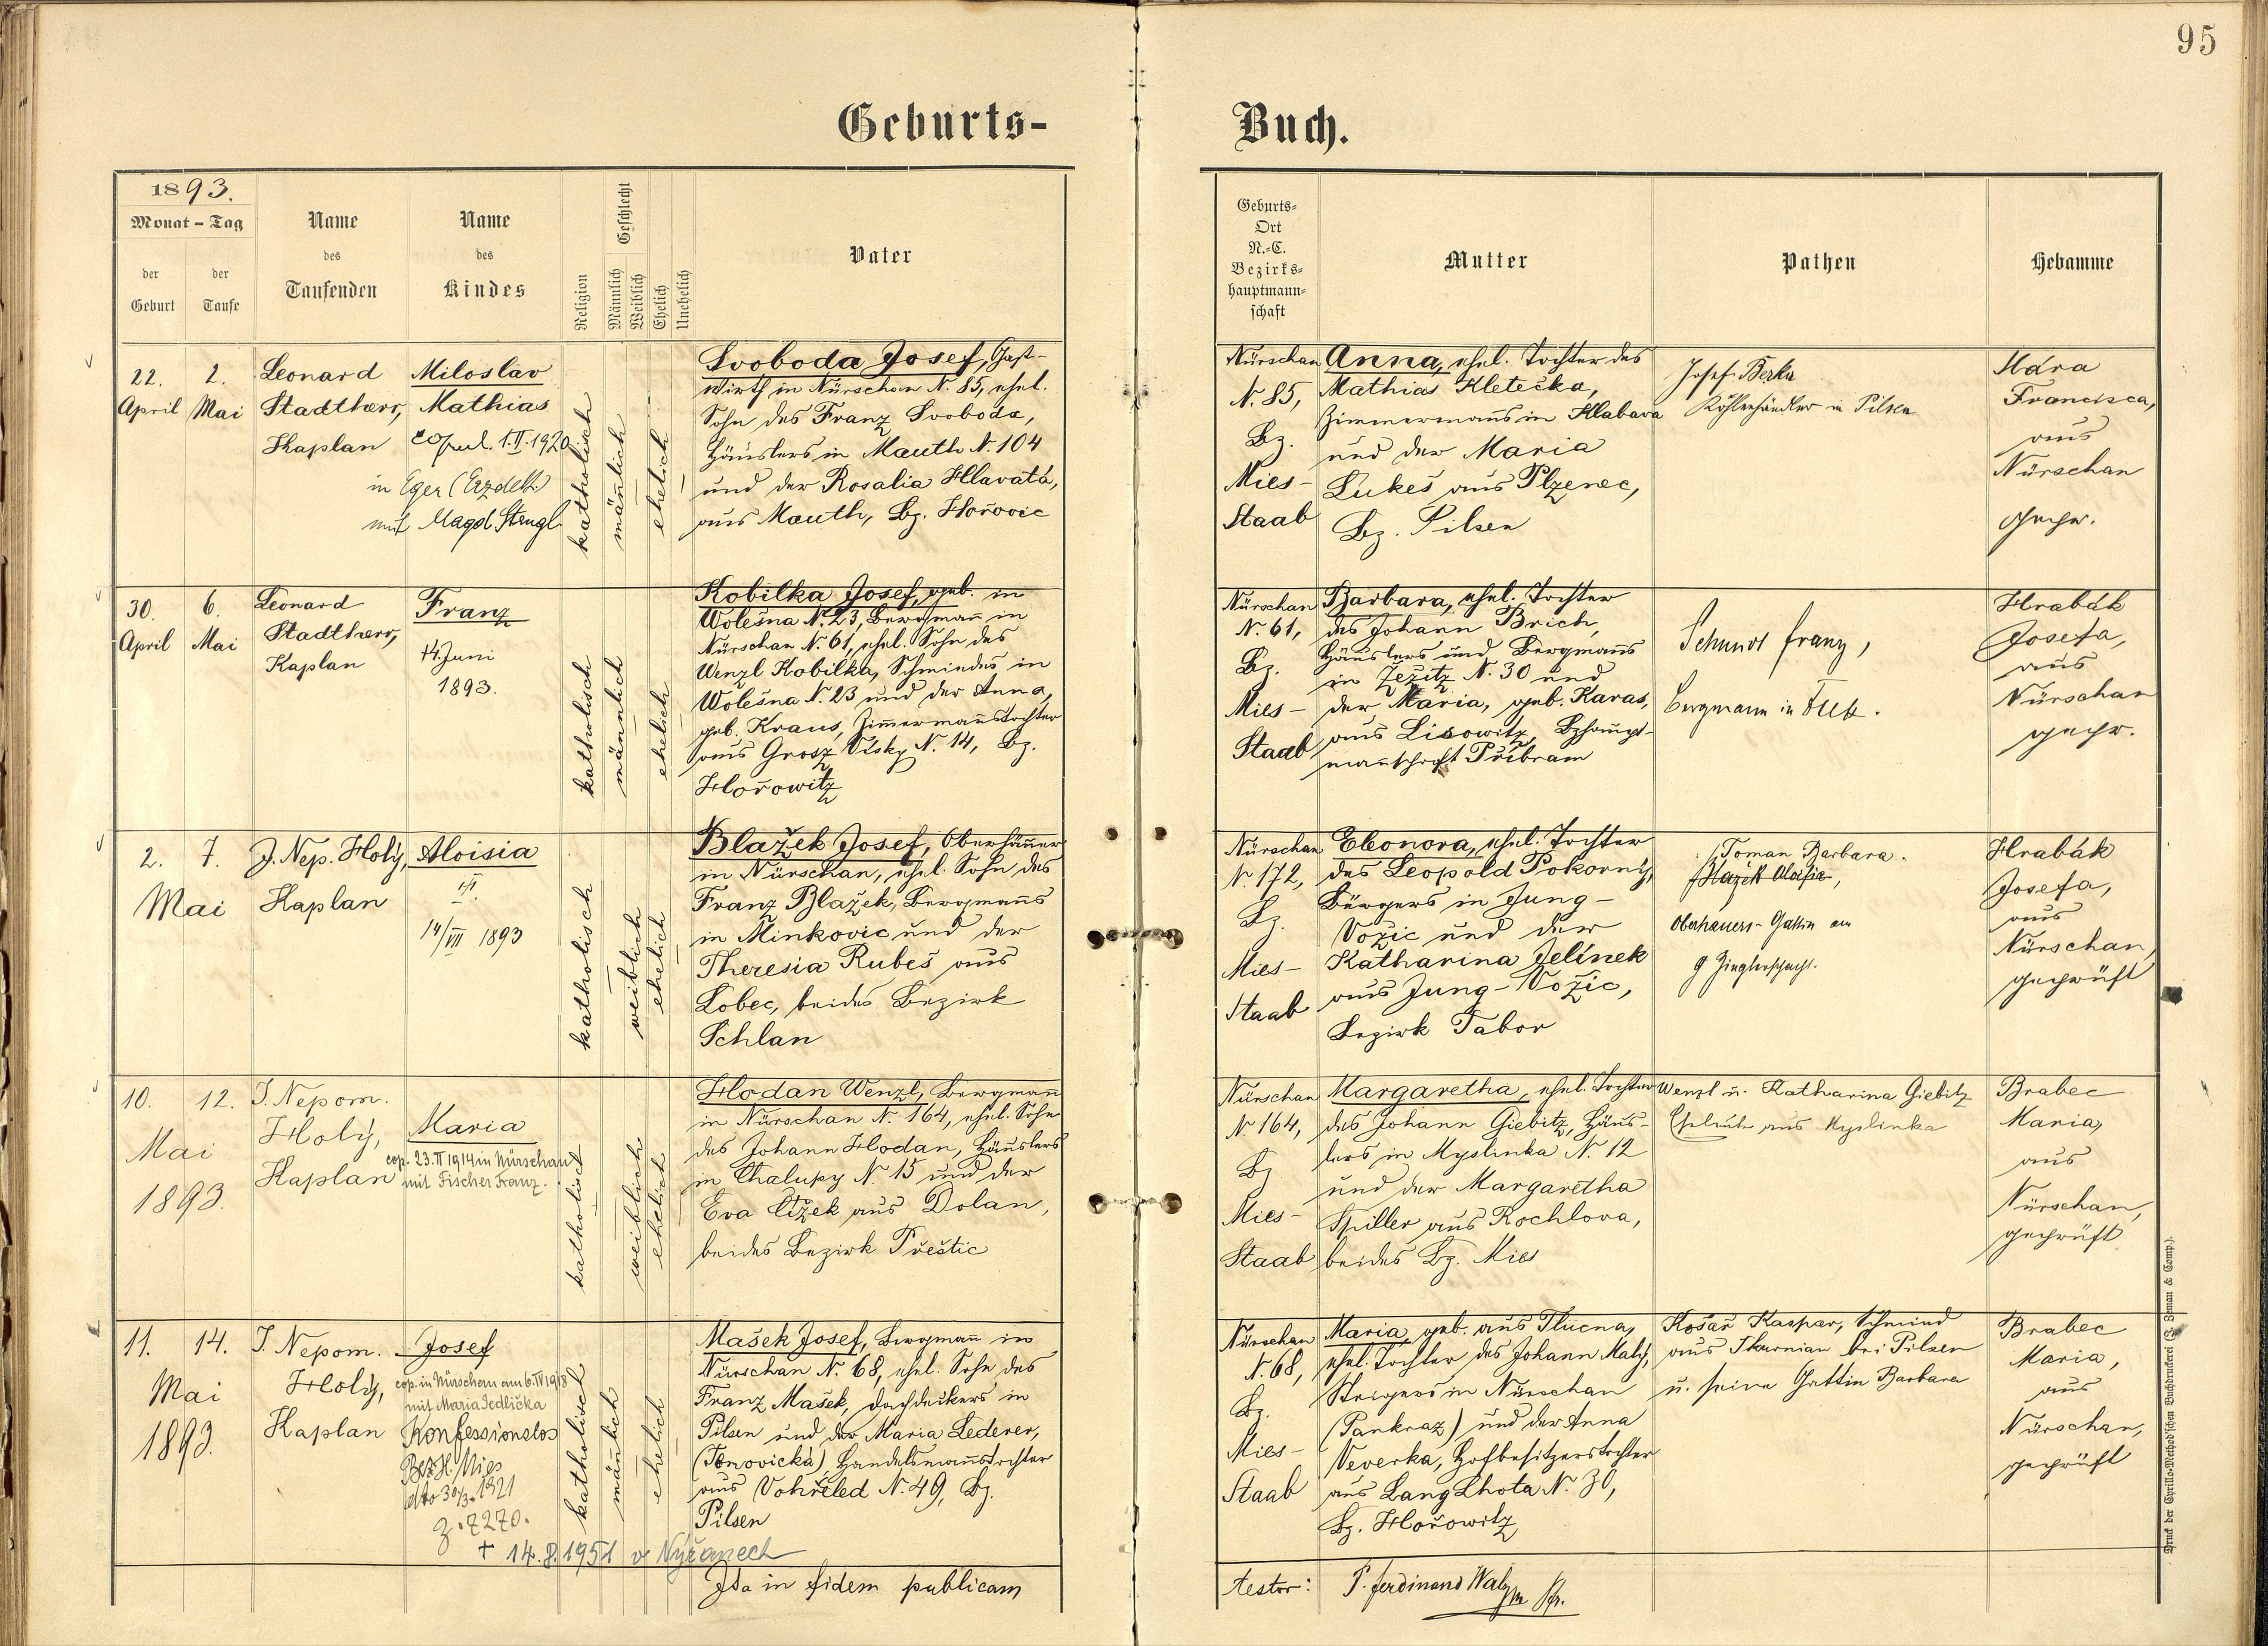 95
Geburts-
Buch.
1893.
Monat - Tag
der Geburt
der Taufe
Name des Taufenden
Name des Kindes
Religion
Geschlecht
Männlich
Weiblich
Ehelich
Unehelich
Vater
Geburts-
Ort
N.-C.
Bezirks-
hauptmann-
schaft
Mutter
Pathen
Hebamme
22.
April
2.
Mai
Leonard
Stadtherr,
Kaplan
Miloslav
Mathias
Copul. 1.II.1920
in Eger (Erzdekt.)
mit Magd. Stengl
katholisch
männlich
ehelich
Svoboda Josef, Gast-
wirth in Nürschan N. 85, ehel.
Sohn des Franz Svoboda,
Häuslers in Mauth N. 104
und der Rosalia Hlavatá,
aus Mauth, Bz. Hořovic
Nürschan
N. 85,
Bz.
Mies-
Staab
Anna, ehel. Tochter des
Mathias Kletečka,
Zimmermanns in Hlabava
und der Maria
Lukeš aus Plzenec,
Bz. Pilsen
Josef Berka
Kohlenhändler in Pilsen
Hára
Francisca,
aus
Nürschan
gepr.
30.
April
6.
Mai
Leonard
Stadtherr,
Kaplan
Franz
14. Juni
1893.
katholisch
männlich
ehelich
Kobilka Josef, geb. in
Wolešna N. 23, Bergmann in
Nürschan N. 61, ehel. Sohn des
Wenzl Kobilka, Schmiedes in
Wolešna N. 23 und der Anna,
geb. Kraus, Zimmermannstochter
aus Grosz Visky N. 14, Bz.
Hořowitz
Nürschan
N. 61,
Bz.
Mies-
Staab
Barbara, ehel. Tochter
des Johann Brich,
Häuslers und Bergmanns
in Zežitz N. 30 und
der Maria, geb. Karas,
aus Lisowitz, Bzhaupt-
mannschaft Přibram
Schmidt Franz,
Bergmann in
Hrabák
Josefa,
aus
Nürschan
gepr.
2.
7.
Mai
J. Nep. Holý,
Kaplan
Aloisia
14/VII 1893
katholisch
weiblich
ehelich
Blažek Josef, Oberhäuer
in Nürschan, ehel. Sohn des
Franz Blažek, Bergmanns
in Minkovic und der
Theresia Rubeš aus
Lobec, beides Bezirk
Schlan
Nürschan
N. 172,
Bz.
Mies-
Staab
Eleonora, ehel. Tochter
des Leopold Pokorný,
Bürgers in Jung-
Vožic und der
Katharina Jelínek
aus Jung-Vožic,
Bezirk Tabor
Toman Barbara.
Blazek Aloisia,
Oberhauers-Gattin am
Zieglerschacht.
Hrabák
Josefa,
aus
Nürschan,
geprüft
10.
12.
Mai
1893.
J. Nepom.
Holý,
Kaplan
Maria
cop. 23.II 1914 in Nürschan
mit Fischer Franz.
katholisch
weiblich
ehelich
Hodan Wenzl, Bergmann
in Nürschan N. 164, ehel. Sohn
des Johann Hodan, Häuslers
in Chalupy N. 15 und der
Eva Čížek aus Dolan,
beides Bezirk Přeštic
Nürschan
N. 164,
Bz
Mies-
Staab
Margaretha, ehel. Tochter
des Johann Giebitz, Häus-
lers in Myslinka N. 12
und der Margaretha
Spiller aus Rochlova,
beides Bz. Mies
Wenzl u. Katharina Giebitz
Eheleute aus Myslinka
Brabec
Maria,
aus
Nürschan,
geprüft
11.
14.
Mai
1893.
J. Nepom.
Holý,
Kaplan
Josef
cop. in Nürschan am 6.IV 1918
mit Maria Jedlička
Konfessionslos
Bez.H. Mies
dto 30/3. 1921
Z. 7270.
+ 14.8.1951 v Nýřanech
katholisch
männlich
ehelich
Mašek Josef, Bergmann in
Nürschan N. 68, ehel. Sohn des
Franz Mašek, Dachdeckers in
Pilsen und der Maria Lederer,
Handelsmannstochter
aus Vohřeled N. 49, Bz.
Pilsen
Nürschan
N. 68,
Bz.
Mies-
Staab
Maria, geb. aus Tlucna,
ehel. Tochter des Johann Malý,
Steigers in Nürschan
(Pankraz) und der Anna
Veverka, Hofbesitzerstochter
aus Lang Lhota N. 30,
Bz. Hořowitz
Košař Kaspar, Schmied
aus Skurnian bei Pilsen
u. seine Gattin Barbara
Brabec
Maria,
aus
Nürschan,
geprüft
Ita in fidem publicam
testor: P. Ferdinand
Druck der Cyrillo-Method'schen Buchdruckerei (J. Zeman & Comp.).